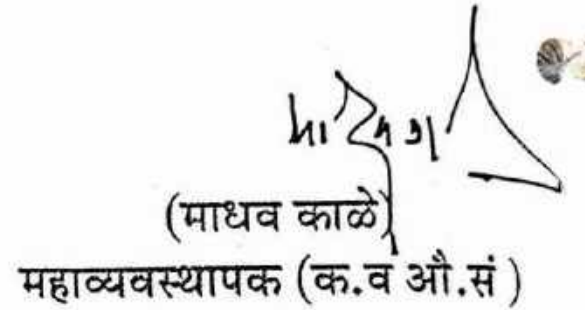 (माधव काळे)
महाव्यवस्थापक (क.व औ.सं )